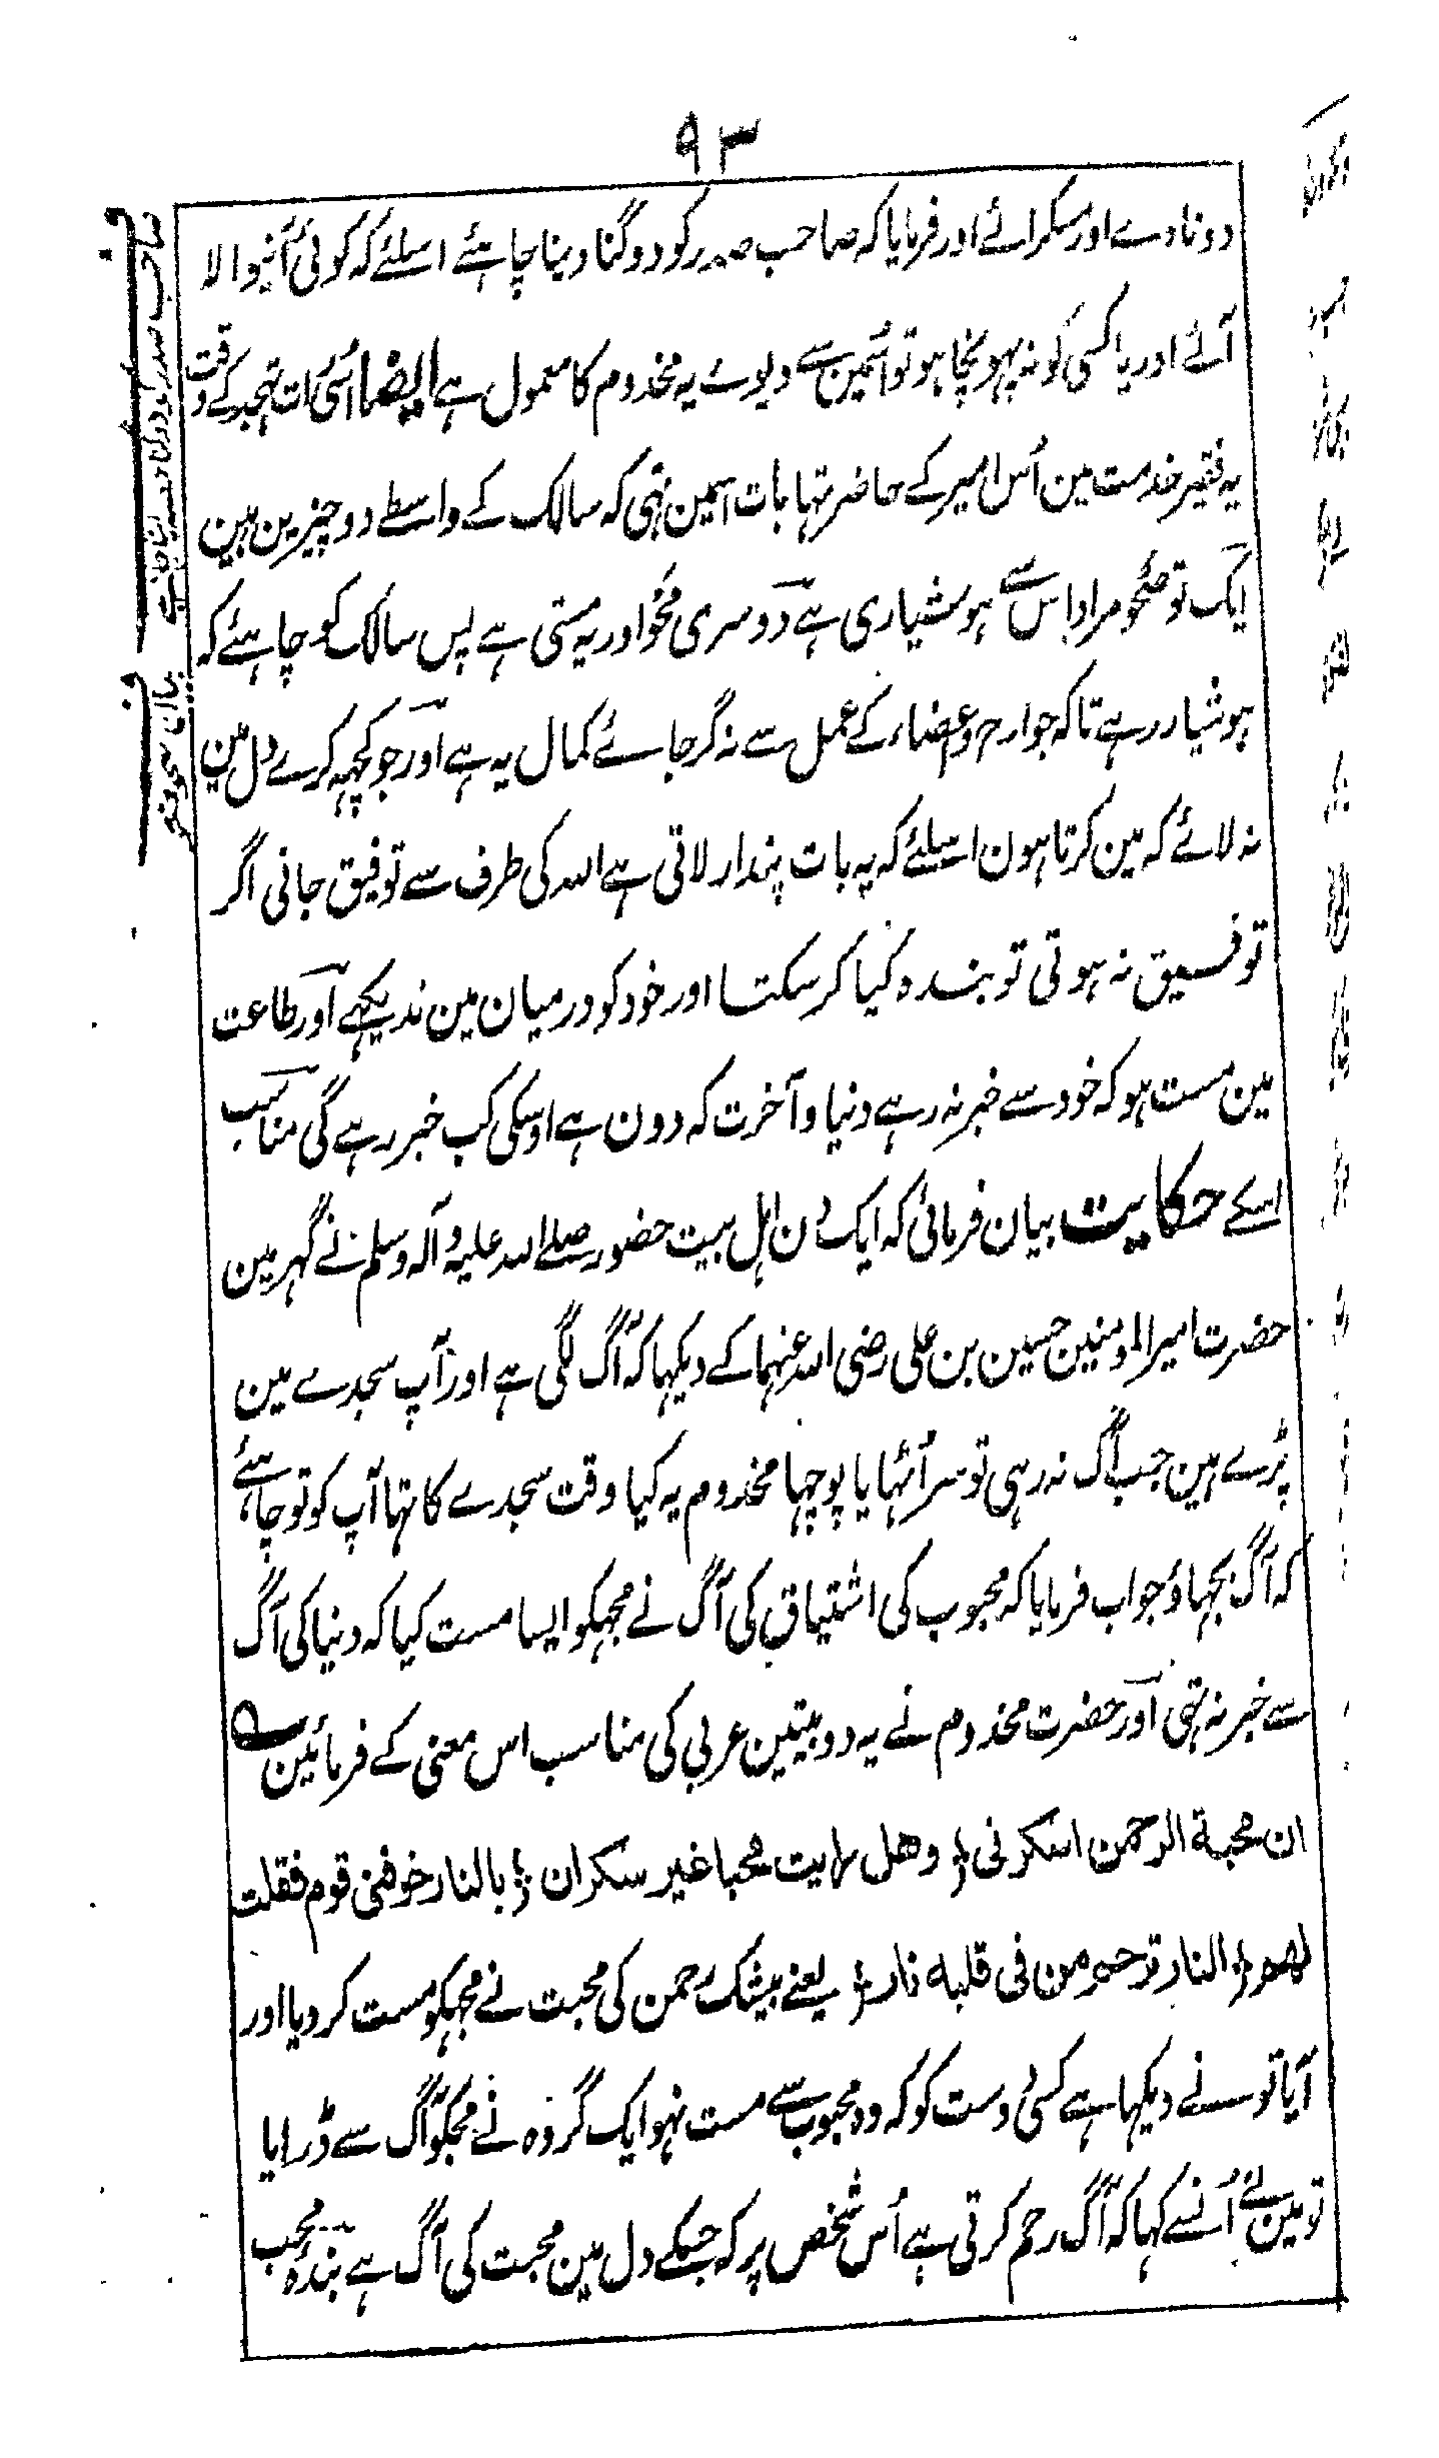 ۹۳
دونا دے اور مسکرائے اور فرمایا کہ صاحب صدر کو دوگنا دینا چاہئے اسلئے کہ کوئی آنیوالا
آئے اور یا کسی کو نہ پہونچا ہو تو اُسمین سے دیوے یہ مخدوم کا معمول ہے ایضا اُسی رات تہجد کے وقت
یہ فقیر خدمت مین اُس امیر کے حاضر تہا بات اسمین تہی کہ سالک کے واسطے دو چیزین ہین
ایک تو صَحْو مراد اس سے ہوشیاری ہے دوسری مَحْو اور یہ مستی ہے پس سالک کو چاہئے کہ
ہوشیار رہے تاکہ جوارح و اعضاء کے عمل سے نہ گر جائے کمال یہ ہے اور جو کچہہ کرے دل مین
نہ لائے کہ مین کرتا ہون اسلئے کہ یہ بات پندار لاتی ہے اللہ کی طرف سے توفیق جانی اگر
توفیق نہ ہوتی تو بندہ کیا کر سکتا اور خود کو درمیان مین ندیکہے اور طاعت
مین مست ہو کہ خود سے خبر نہ رہے دنیا و آخرت کہ دون ہے اوسکی کب خبر رہے گی مناسب
اسکے حکایت بیان فرمائی کہ ایک دن اہل بیت حضور صلے اللہ علیہ و آلہ وسلم نے گہر مین
حضرت امیر المومنین حسین بن علی رضی اللہ عنہما کے دیکہا کہ آگ لگی ہے اور آپ سجدے مین
پڑے ہین جب آگ نہ رہی تو سر اُٹہایا پوچہا مخدوم یہ کیا وقت سجدے کا تہا آپ کو تو چاہئے
کہ آگ بجہاؤ جواب فرمایا کہ محبوب کی اشتیاق کی آگ نے مجہکو ایسا مست کیا کہ دنیا کی آگ
سے خبر نہ تہی اور حضرت مخدوم نے یہ دو بیتین عربی کی مناسب اس معنی کے فرمائین
ان محبة الرحمن اسکرنی ؛ وهل رایت محبا غیر سکران ؛ بالنار خوفنی قوم فقلت
لهم ؛ النار ترحم من فی قلبه نار ؛ یعنے بیشک رحمن کی محبت نے مجہکو مست کر دیا اور
آیا تو نے دیکہا ہے کسی دوست کو کہ وہ محبوب سے مست نہو ایک گروہ نے مجکو آگ سے ڈرایا
تو مین نے اُنسے کہا کہ آگ رحم کرتی ہے اُس شخص پر کہ جسکے دل مین محبت کی آگ ہے بندہ محب
صاحب صدر کو دوگنا حصہ لینا چاہئے
بیان صحو و محو